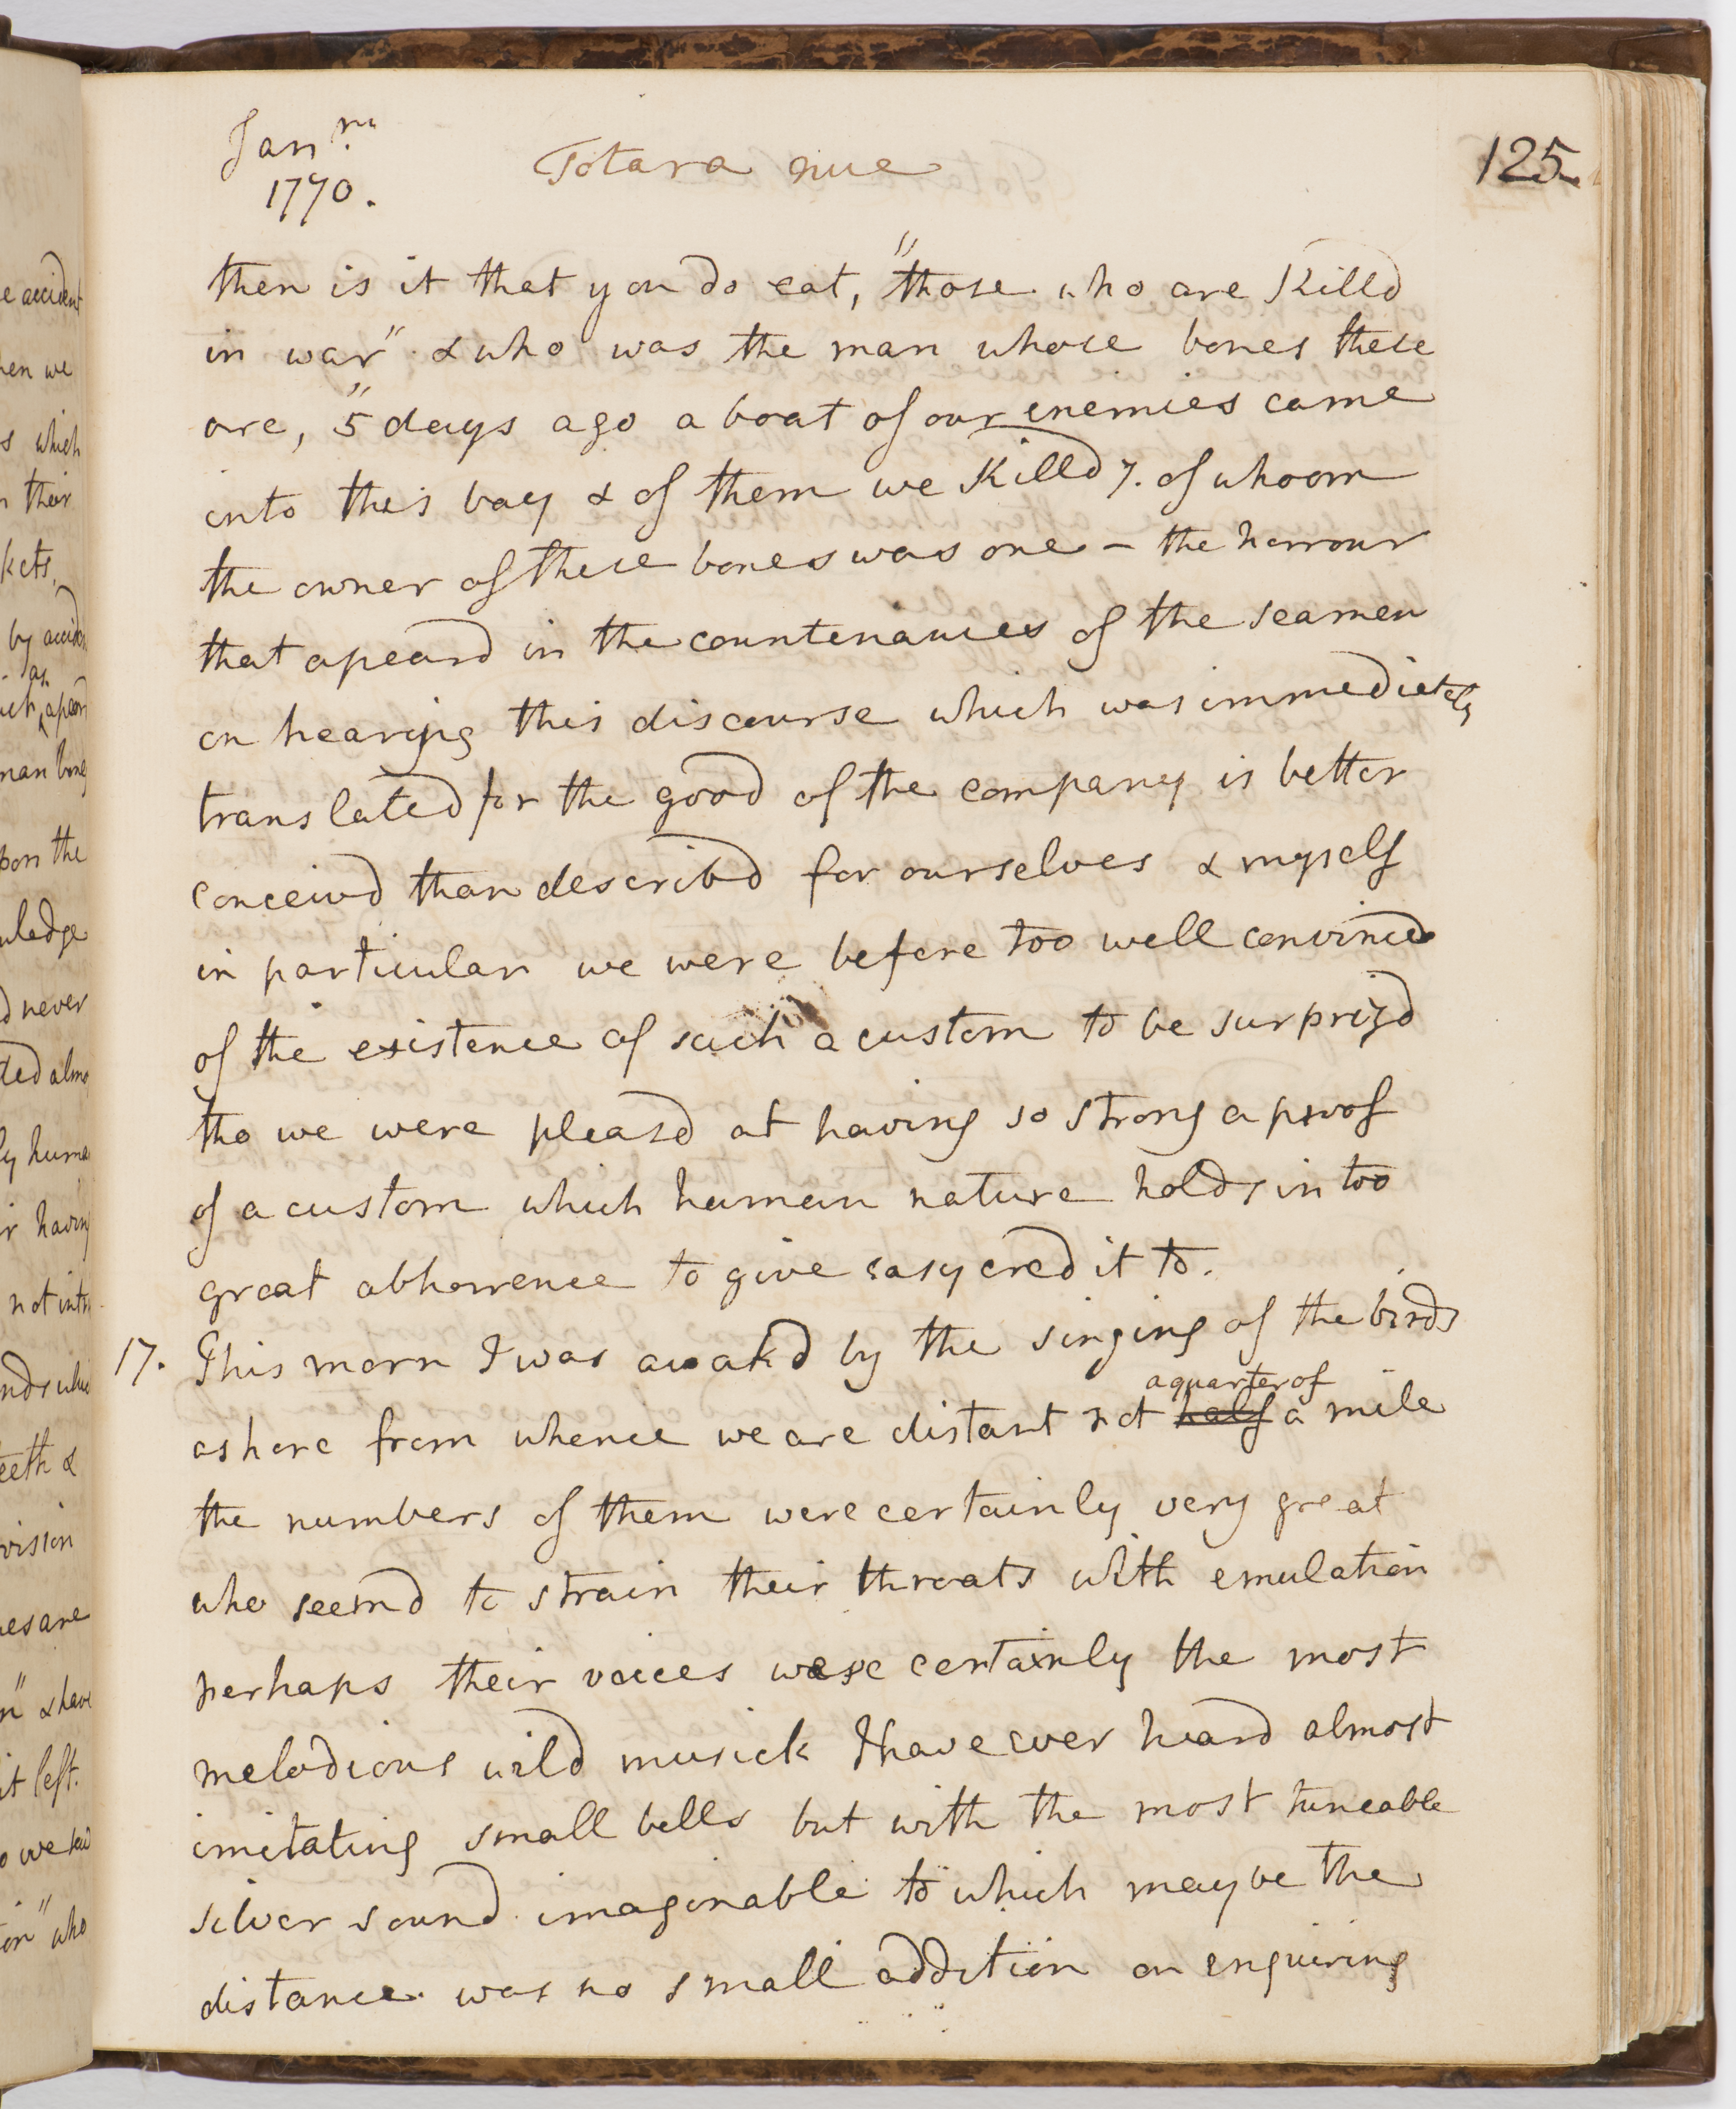 Janry.
1770.
Totara nue
125
then is it that you do eat, "those who are Killd
in war" & who was the man whose bones these
are, "5 days ago a boat of our enemies came
into this bay & of them we Killd 7. of whoom
the owner of these bones was one – the horrour
that apeard in the countenances of the seamen
on hearing this discourse which was immediately
translated for the good of the company is better
conceivd than describd for ourselves & myself
in particular we were before too well convincd
of the existence of such a custom to be surprizd
tho we were pleasd at having so strong a proof
of a custom which human nature holds in too
great abhorrence to give easy credit to.
17. This morn I was awakd by the singing of the birds
a quarter of
ashore from whence we are distant not half a mile
the numbers of them were certainly very great
who seemd to strain their throats with emulation
perhaps their voices were certainly the most
melodious wild musick I have ever heard almost
imitating small bells but with the most tuneable
silver sound imaginable to which maybe the
distance was no small addition on enquiring
e accident
hen we
s which
n their
kets,
by accid
as
apear
man bone
pon the
wledge
d never
ted almo
ly huma
r having
not intr
teeth &
vision
nes are
n" & have
it left.
who